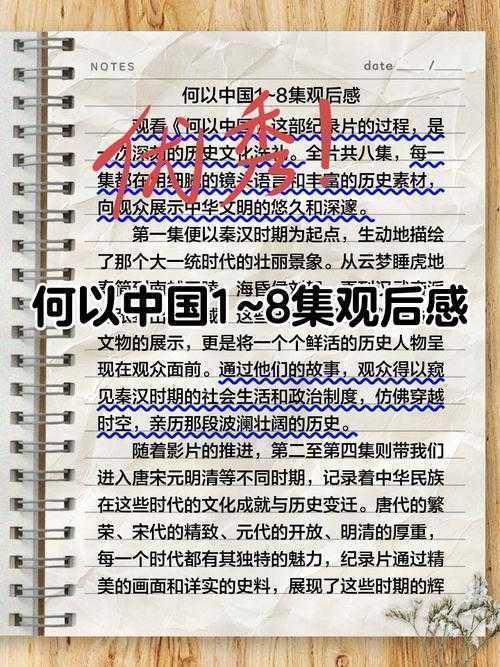 NOTES
date / 
何以中国1~8集观后感
优秀！
观看《何以中国》这部纪录片的过程，是
次深刻的历史文化洗礼。全片共八集，每一
集都在用细腻的镜头语言和丰富的历史素材，
向观众展示中华文明的悠久和深邃。
第一集便以秦汉时期为起点，生动地描绘
了那个大一统时代的壮丽景象。从云梦睡虎地
何以中国1~8集观后感
文物的展示，更是将一个个鲜活的历史人物呈
现在观众面前。通过他们的故事，观众得以窥
见秦汉时期的社会生活和政治制度，仿佛穿越
时空，亲历那段波澜壮阔的历史。
随着影片的推进，第二至第四集则带我们
进入唐宋元明清等不同时期，记录着中华民族
在这些时代的文化成就与历史变迁。唐代的繁
荣、宋代的精致、元代的开放、明清的厚重，
每一个时代都有其独特的魅力，纪录片通过精
美的画面和详实的史料，展现了这些时期的辉